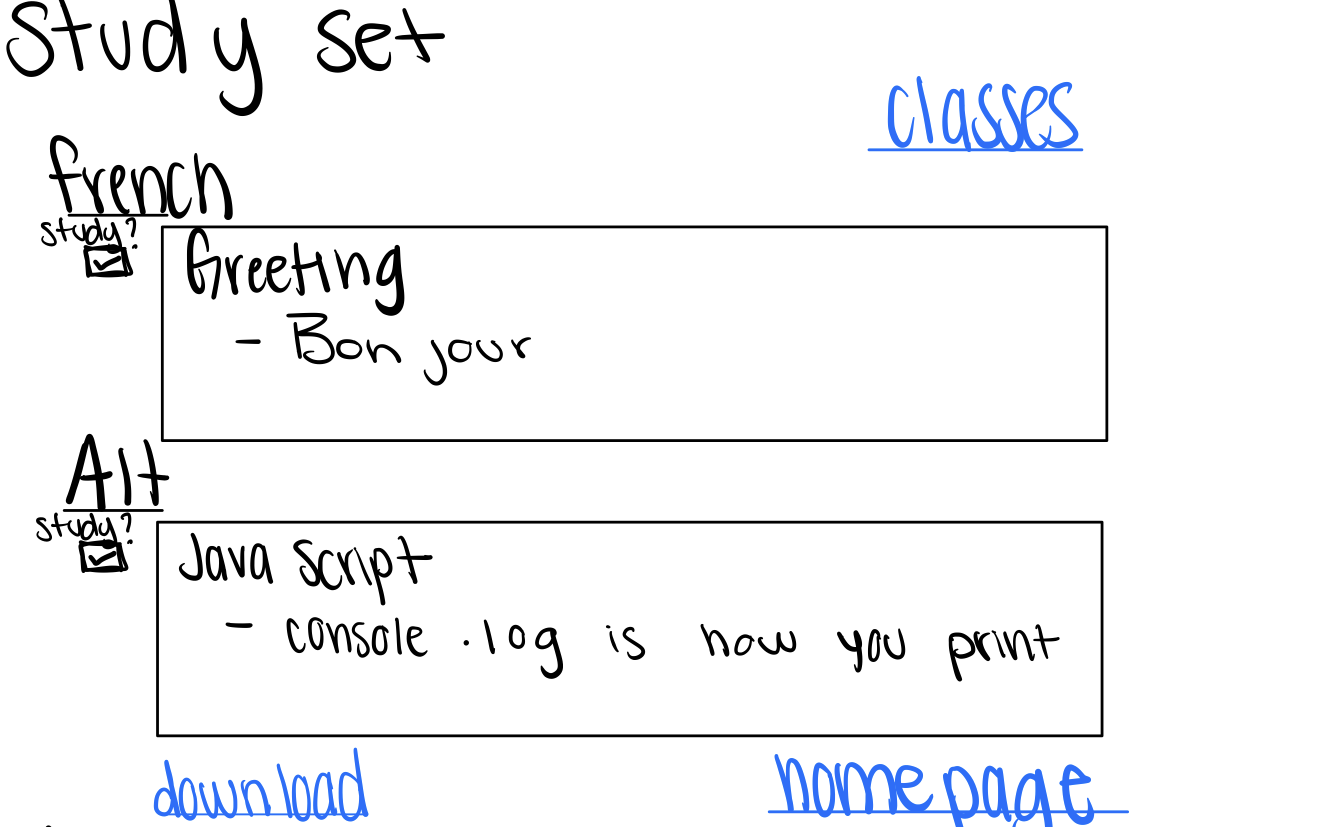 Study set
classes
french
study?
Greeting
- Bon jour
Alt
study?
Java Script
- console .log is how you print
download
homepage